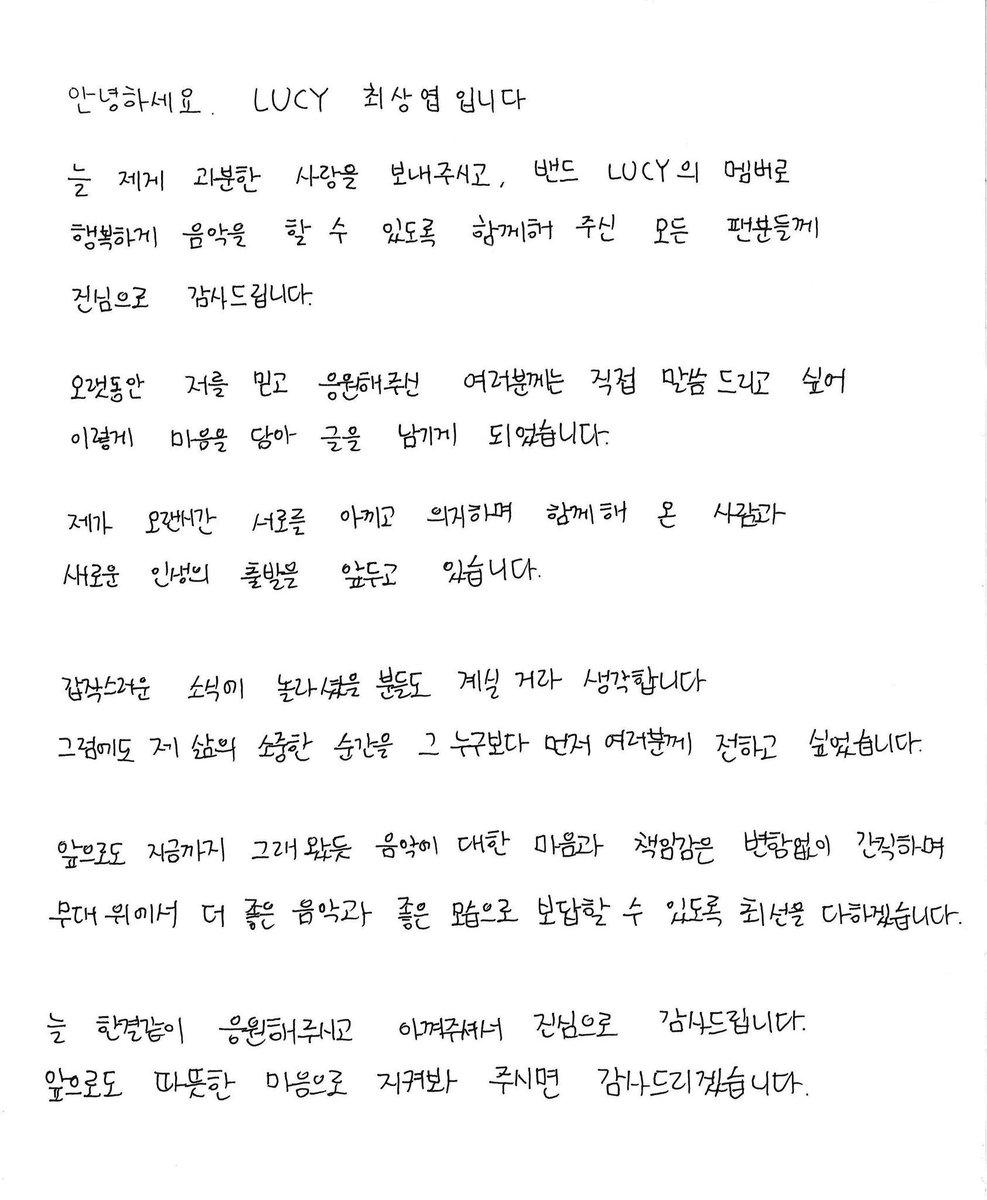 안녕하세요. LUCY 최상엽입니다
늘 제게 과분한 사랑을 보내주시고, 밴드 LUCY의 멤버로
행복하게 음악을 할 수 있도록 함께해 주신 모든 팬분들께
진심으로 감사드립니다.
오랫동안 저를 믿고 응원해주신 여러분께는 직접 말씀드리고 싶어
이렇게 마음을 담아 글을 남기게 되었습니다.
제가 오랜시간 서로를 아끼고 의지하며 함께해 온 사람과
새로운 인생의 출발을 앞두고 있습니다.
갑작스러운 소식에 놀라셨을 분들도 계실 거라 생각합니다
그럼에도 제 삶의 소중한 순간을 그 누구보다 먼저 여러분께 전하고 싶었습니다.
앞으로도 지금까지 그래왔듯 음악에 대한 마음과 책임감은 변함없이 간직하며
무대 위에서 더 좋은 음악과 좋은 모습으로 보답할 수 있도록 최선을 다하겠습니다.
늘 한결같이 응원해주시고 아껴주셔서 진심으로 감사드립니다.
앞으로도 따뜻한 마음으로 지켜봐 주시면 감사드리겠습니다.